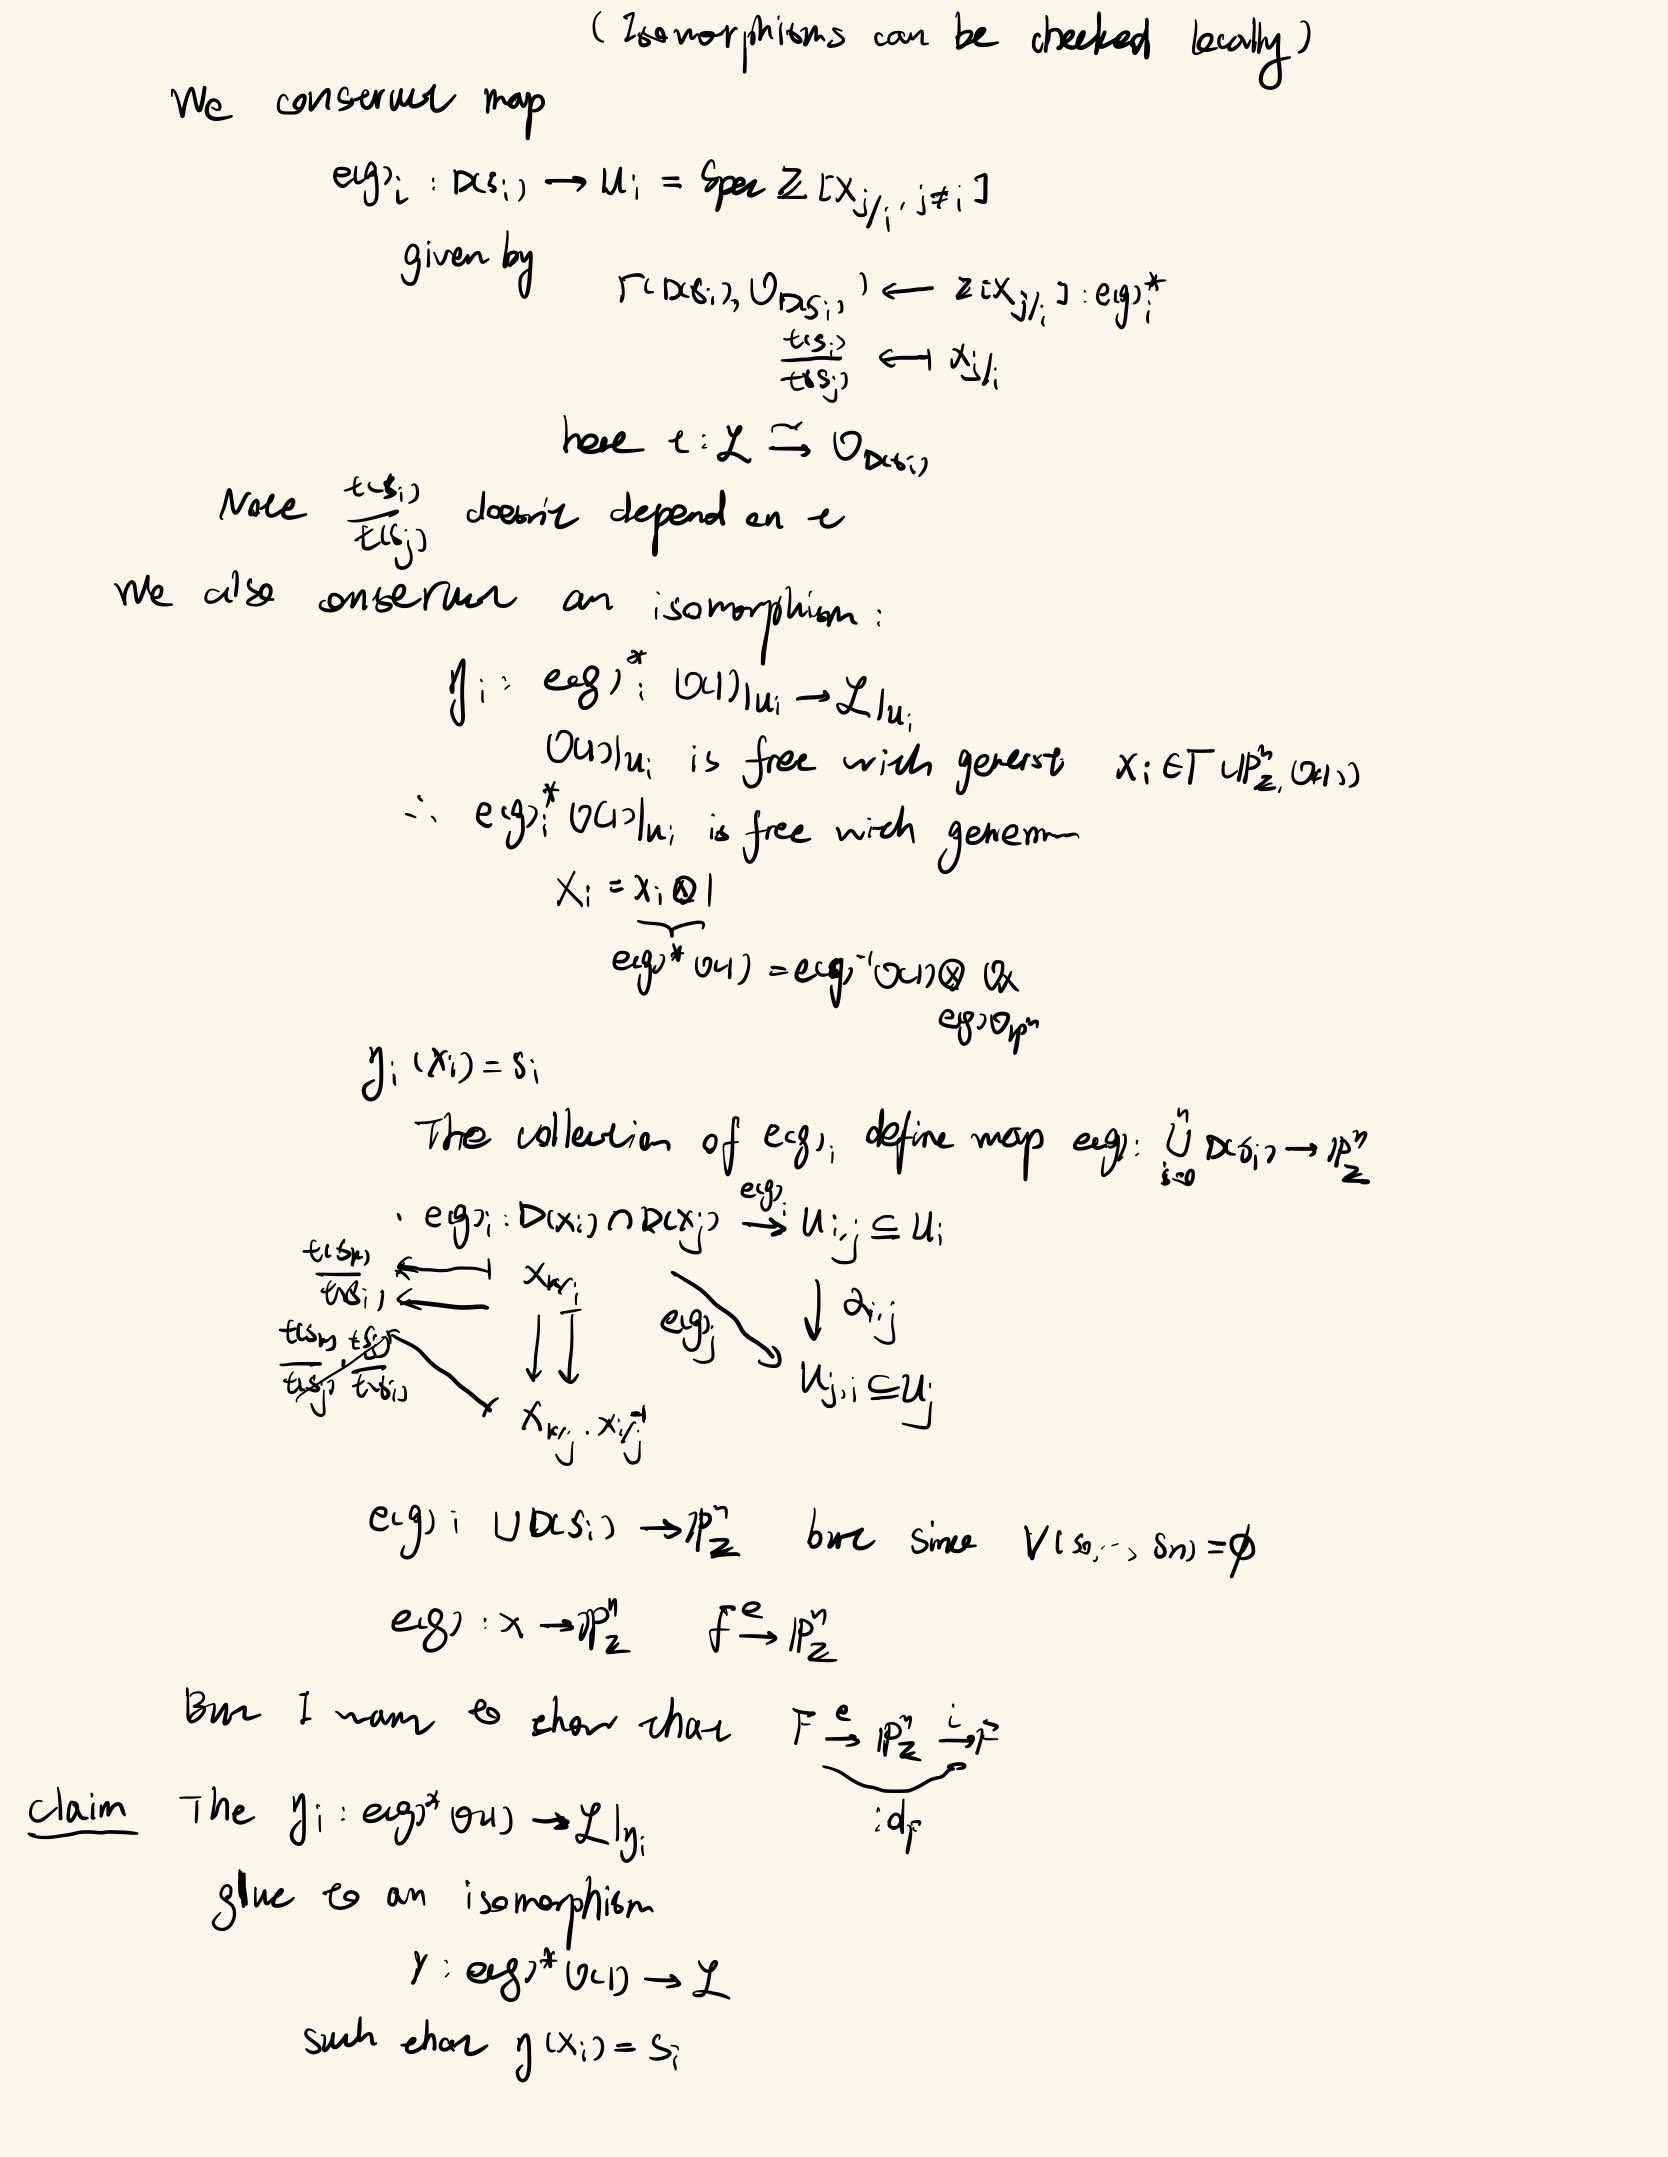 (Isomorphisms can be checked locally)
We construct map
e(g)_i : D(s_i) → U_i = Spec Z[x_{j/i}, j≠i]
given by
Γ(D(s_i), O_{D(s_i)}) ← Z[x_{j/i}] : e(g)_i^*
t(s_i)/t(s_j) ↤ x_{j/i}
here t : L ≅→ O_{D(s_i)}
Note t(s_i)/t(s_j) doesn't depend on t
We also construct an isomorphism :
η_i : e(g)_i^* O(1)|_{U_i} → L|_{U_i}
O(1)|_{U_i} is free with x_i ∈ Γ(P^n_Z, O(1))
∴ e(g)_i^* O(1)|_{U_i} is free with
X_i = x_i ⊗ 1
e(g)^* O(1) = e(g)^{-1} O(1) ⊗ O_X
e(g) O_{P^n}
η_i (X_i) = s_i
The collection of e(g)_i define map e(g) : ⋃_{i=0}^n D(s_i) → P^n_Z
· e(g)_i : D(x_i) ∩ D(x_j) →^{e(g)_i} U_{i,j} ⊆ U_i
t(s_k)/t(s_i) ↤ x_{k/i} e(g)_j ↓ α_{i,j}
t(s_k)/t(s_j) · t(s_j)/t(s_i) U_{j,i} ⊆ U_j
x_{k/j} · x_{i/j}^{-1}
e(g)_i ∪D(s_i) → P^n_Z but since V(s_0, ..., s_n) = ∅
e(g) : X → P^n_Z F →^e P^n_Z
But I want to show that F →^e P^n_Z →^i F
id_F
claim The η_i : e(g)^* O(1) → L|_{η_i}
glue to an isomorphism
γ : e(g)^* O(1) → L
such that η(x_i) = s_i